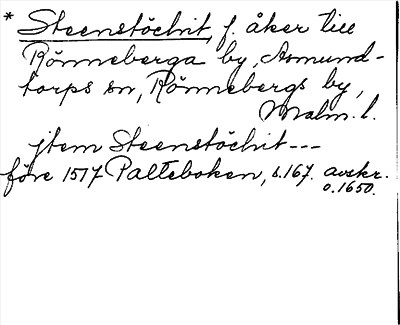 * Steenstöchit, f. åker till
Rönneberga by, Asmund-
torps sn, Rönnebergs by,
Malm. l.
jtem Steenstöchit ---
före 1517 Palteboken, s.167. avskr.
o.1650.